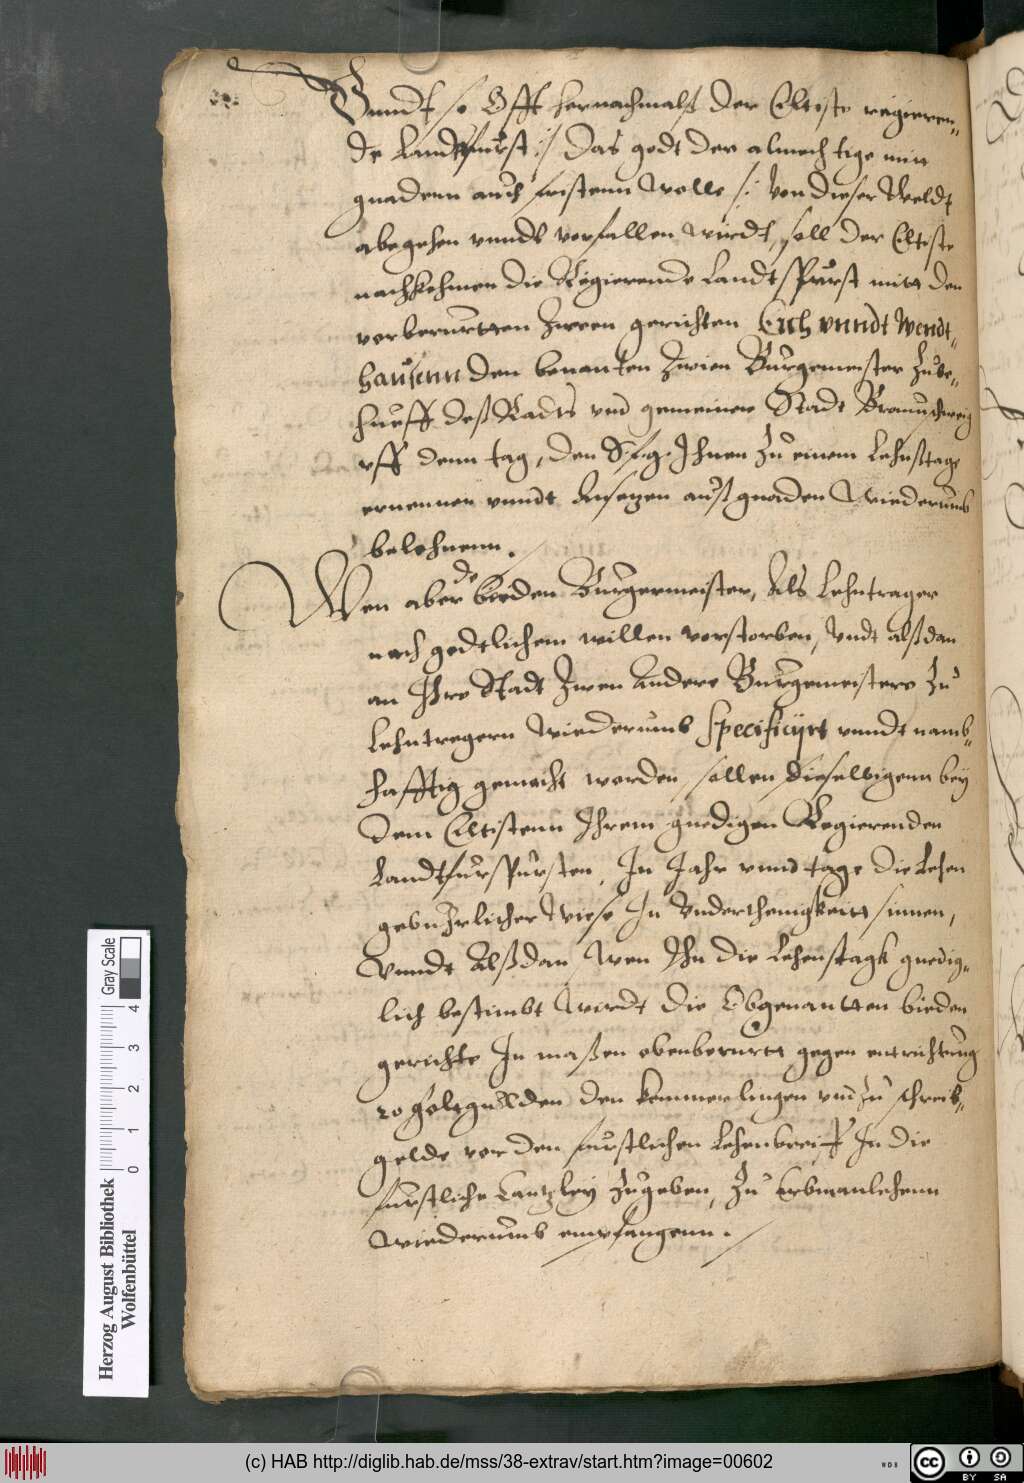 Vnndt so Offt hernachmalß der Elteste regieren-
de Landtfurst :/ Das godt der almechtige mitt
gnadenn auch fristenn wolle /: Von dieser Weldt
abegehen vnndt vorfallen wirdt, soll der Elteste
nachkohmen die Regierende Landtsfurst mitt den
vorberurtten Zween gerichten Eich vnndt Wendt-
hausenn den benanten Zwien Burgemeister Zube-
hueff deß Radts vnd gemeiner Stadt Braunschweig
vff denn tag, den S.f.g. Ihnen Zu einem Lehnßtage
ernennen vnndt Ansetzen auß gnaden Wiederumb
belehnenn.
Wen aber de beiden Burgermeister, Als Lehntrager
nach godtlichem willen verstorben, Vndt alßdan
an Ihre Stadt Zwen Andere Burgemeistere Zu
Lehntregern Wiederumb specificiyrt vnndt namb-
hafftig gemacht worden, sollen dieselbigenn bey
Dem Eltistenn Ihrem gnedigen Regierenden
Landtsfursten, In Jahr vnnd tage die Lehen
gebuhrlicher Wiese In Vnderthenigkeitt sinnen,
Vnndt Alßdan Wen Ihn die Lehenstagk gnedig-
lich bestimbt Wirdt die Obgenantten bieden
gerichte In maßen obenberurtt gegen entrichtung
20 goltgulden den kemmerlingen vnd Zu schreib-
gelde vor den furstlichen Lehenbreiff In die
furstliche Cantzley Zugeben, Zu Erbmanlehenn
Wiederumb empfangenn.
Herzog August Bibliothek
Wolfenbüttel
Gray Scale
0 1 2 3 4
(c) HAB http://diglib.hab.de/mss/38-extrav/start.htm?image=00602
WDB
cc BY SA